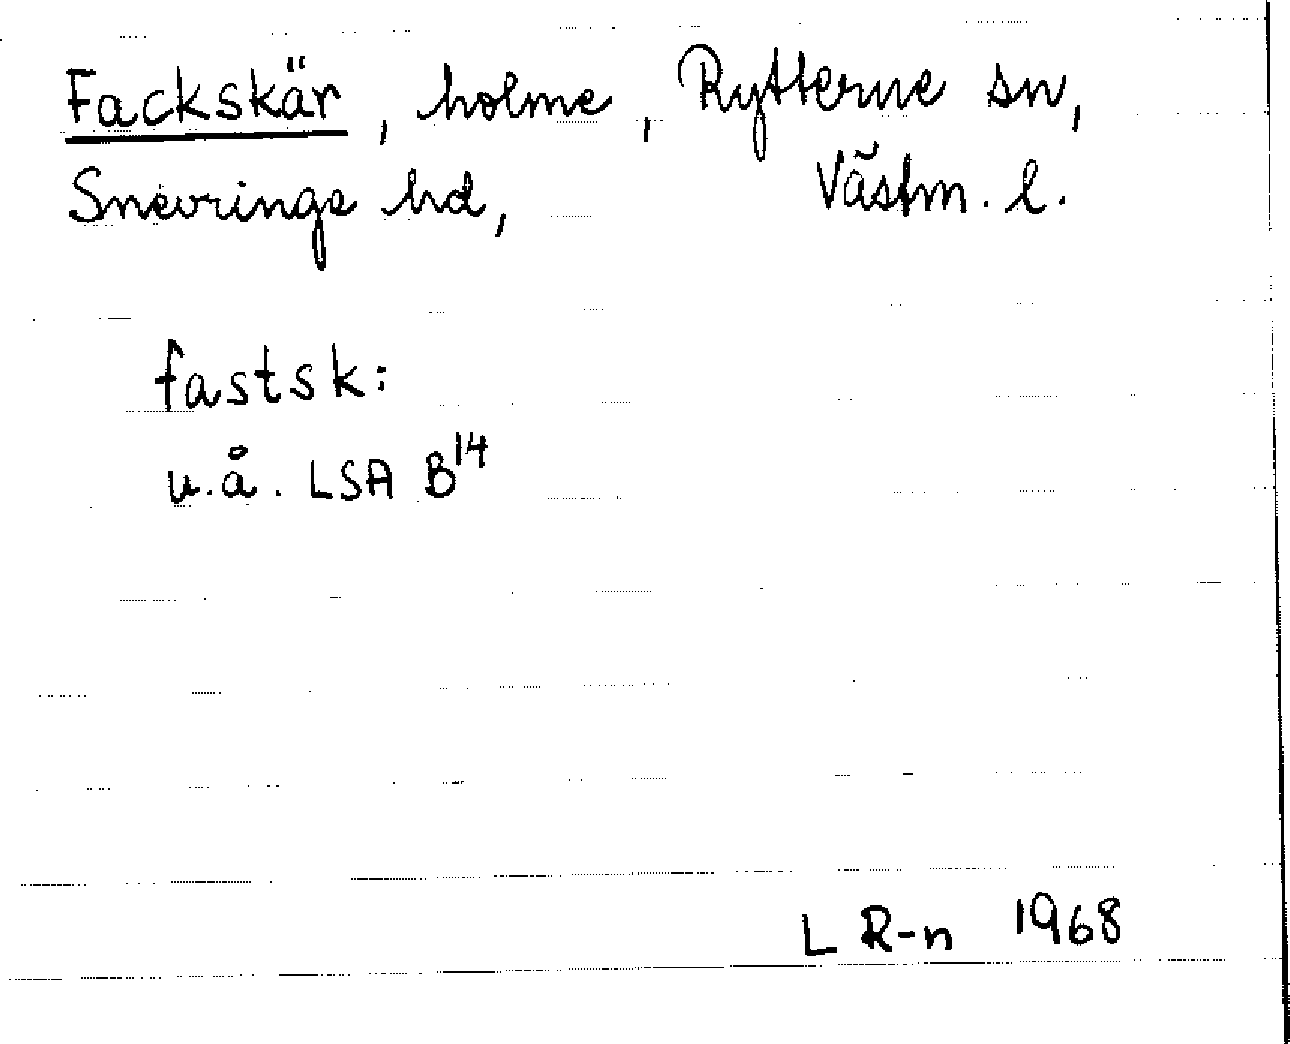 Fackskär, holme, Rytterne sn,
Snevringe hd, Västm. l.
fastsk:
u.å. LSA B14
L R-n 1968